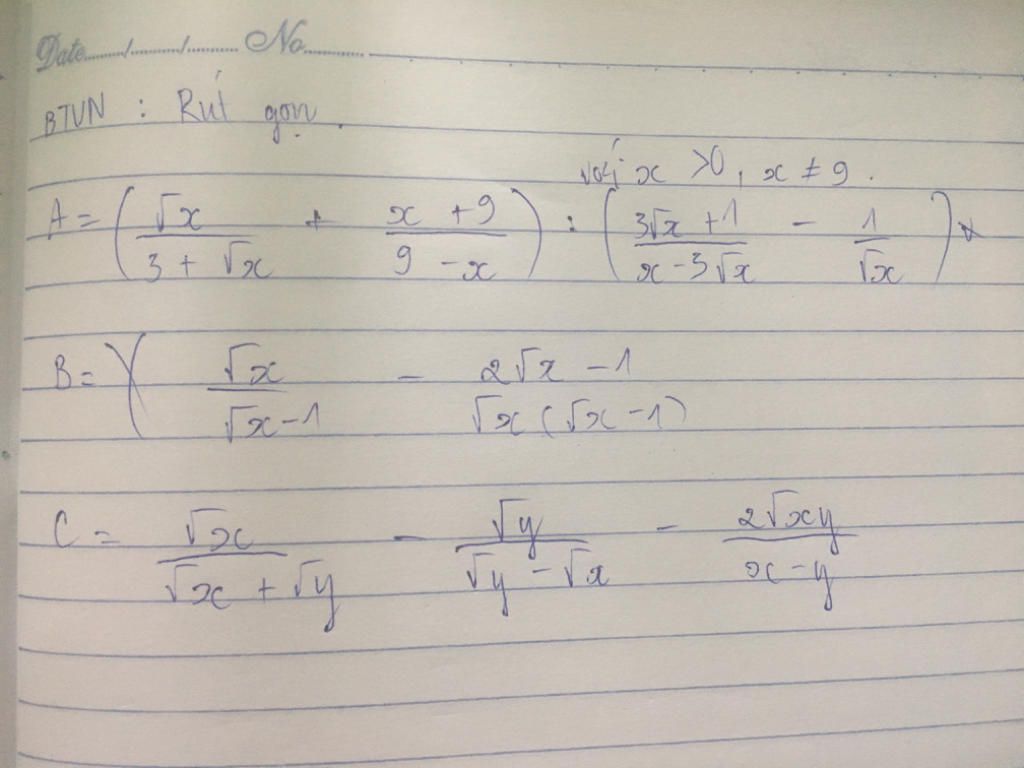 Date....../......./.......... No............
BTVN : Rút gọn.
với x >0, x ≠ 9.
A = (√x / (3 + √x) + (x + 9) / (9 - x)) : ((3√x + 1) / (x - 3√x) - 1 / √x)
B = ( √x / (√x - 1) - 2√x - 1 / √x (√x - 1)
C = √x / (√x + √y) - √y / (√y - √x) - 2√xy / (x - y)